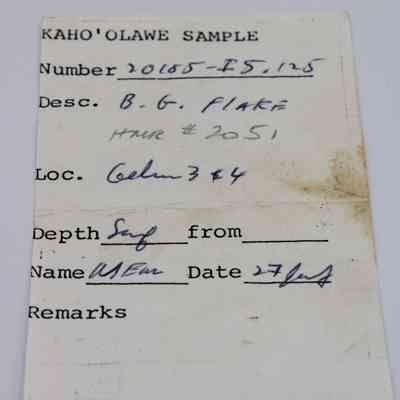 KAHO'OLAWE SAMPLE
Number 20105-I5.125
Desc. B.G. FLAKE
HMR # 2051
Loc. 3 & 4
Depth Surf from
Name Date 27
Remarks